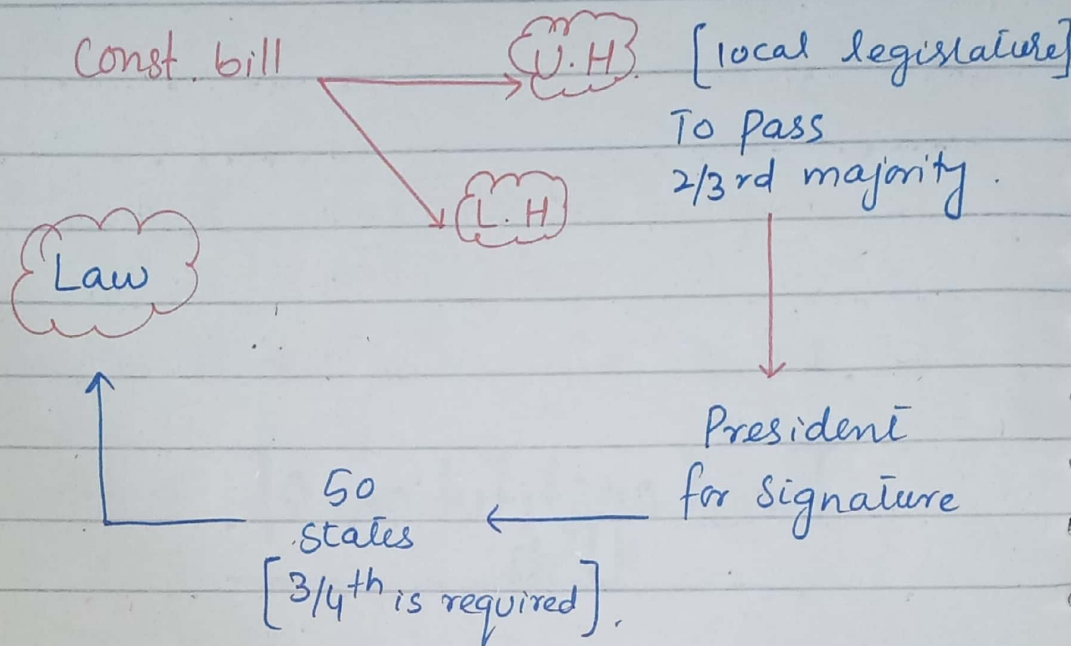 Const. bill
U.H
[local legislature]
To pass
2/3rd majority.
L.H
Law
President
for signature
50
states
[3/4th is required].